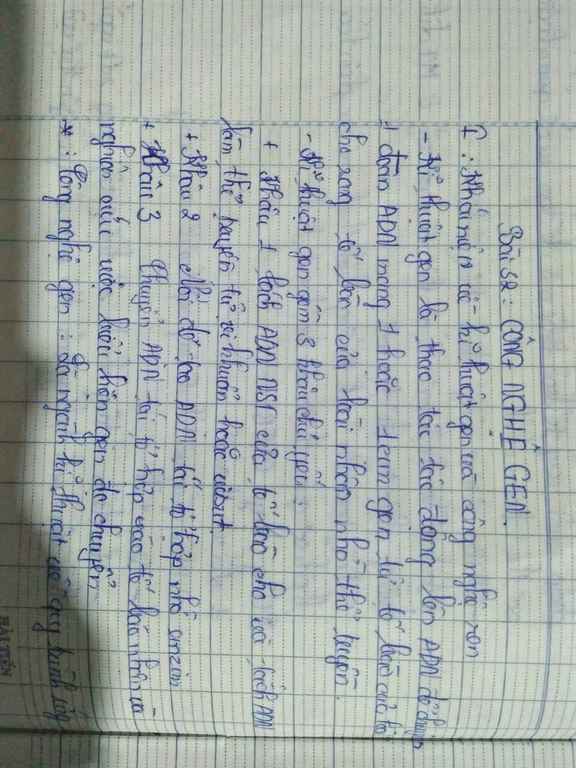 Bài 32: CÔNG NGHỆ GEN.
I: Khái niệm về kĩ thuật gen và công nghệ gen
- Kĩ thuật gen là thao tác tác động lên ADN để chuyển
1 đoạn ADN mang 1 hoặc 1 cụm gen từ tế bào của loài
cho sang tế bào của loài nhận nhờ thể truyền.
- Kĩ thuật gen gồm 3 khâu chủ yếu:
+ Khâu 1 tách ADN NST của tế bào cho và tách ADN
làm thể truyền từ vi khuẩn hoặc virut.
+ Khâu 2 Nối để tạo ADN tái tổ hợp nhờ enzim
+ Khâu 3 Chuyển ADN tái tổ hợp vào tế bào nhận và
nghiên cứu việc biểu hiện gen đc chuyển
*: Công nghệ gen: Là ngành kĩ thuật về quy trình
HẢI TIẾN